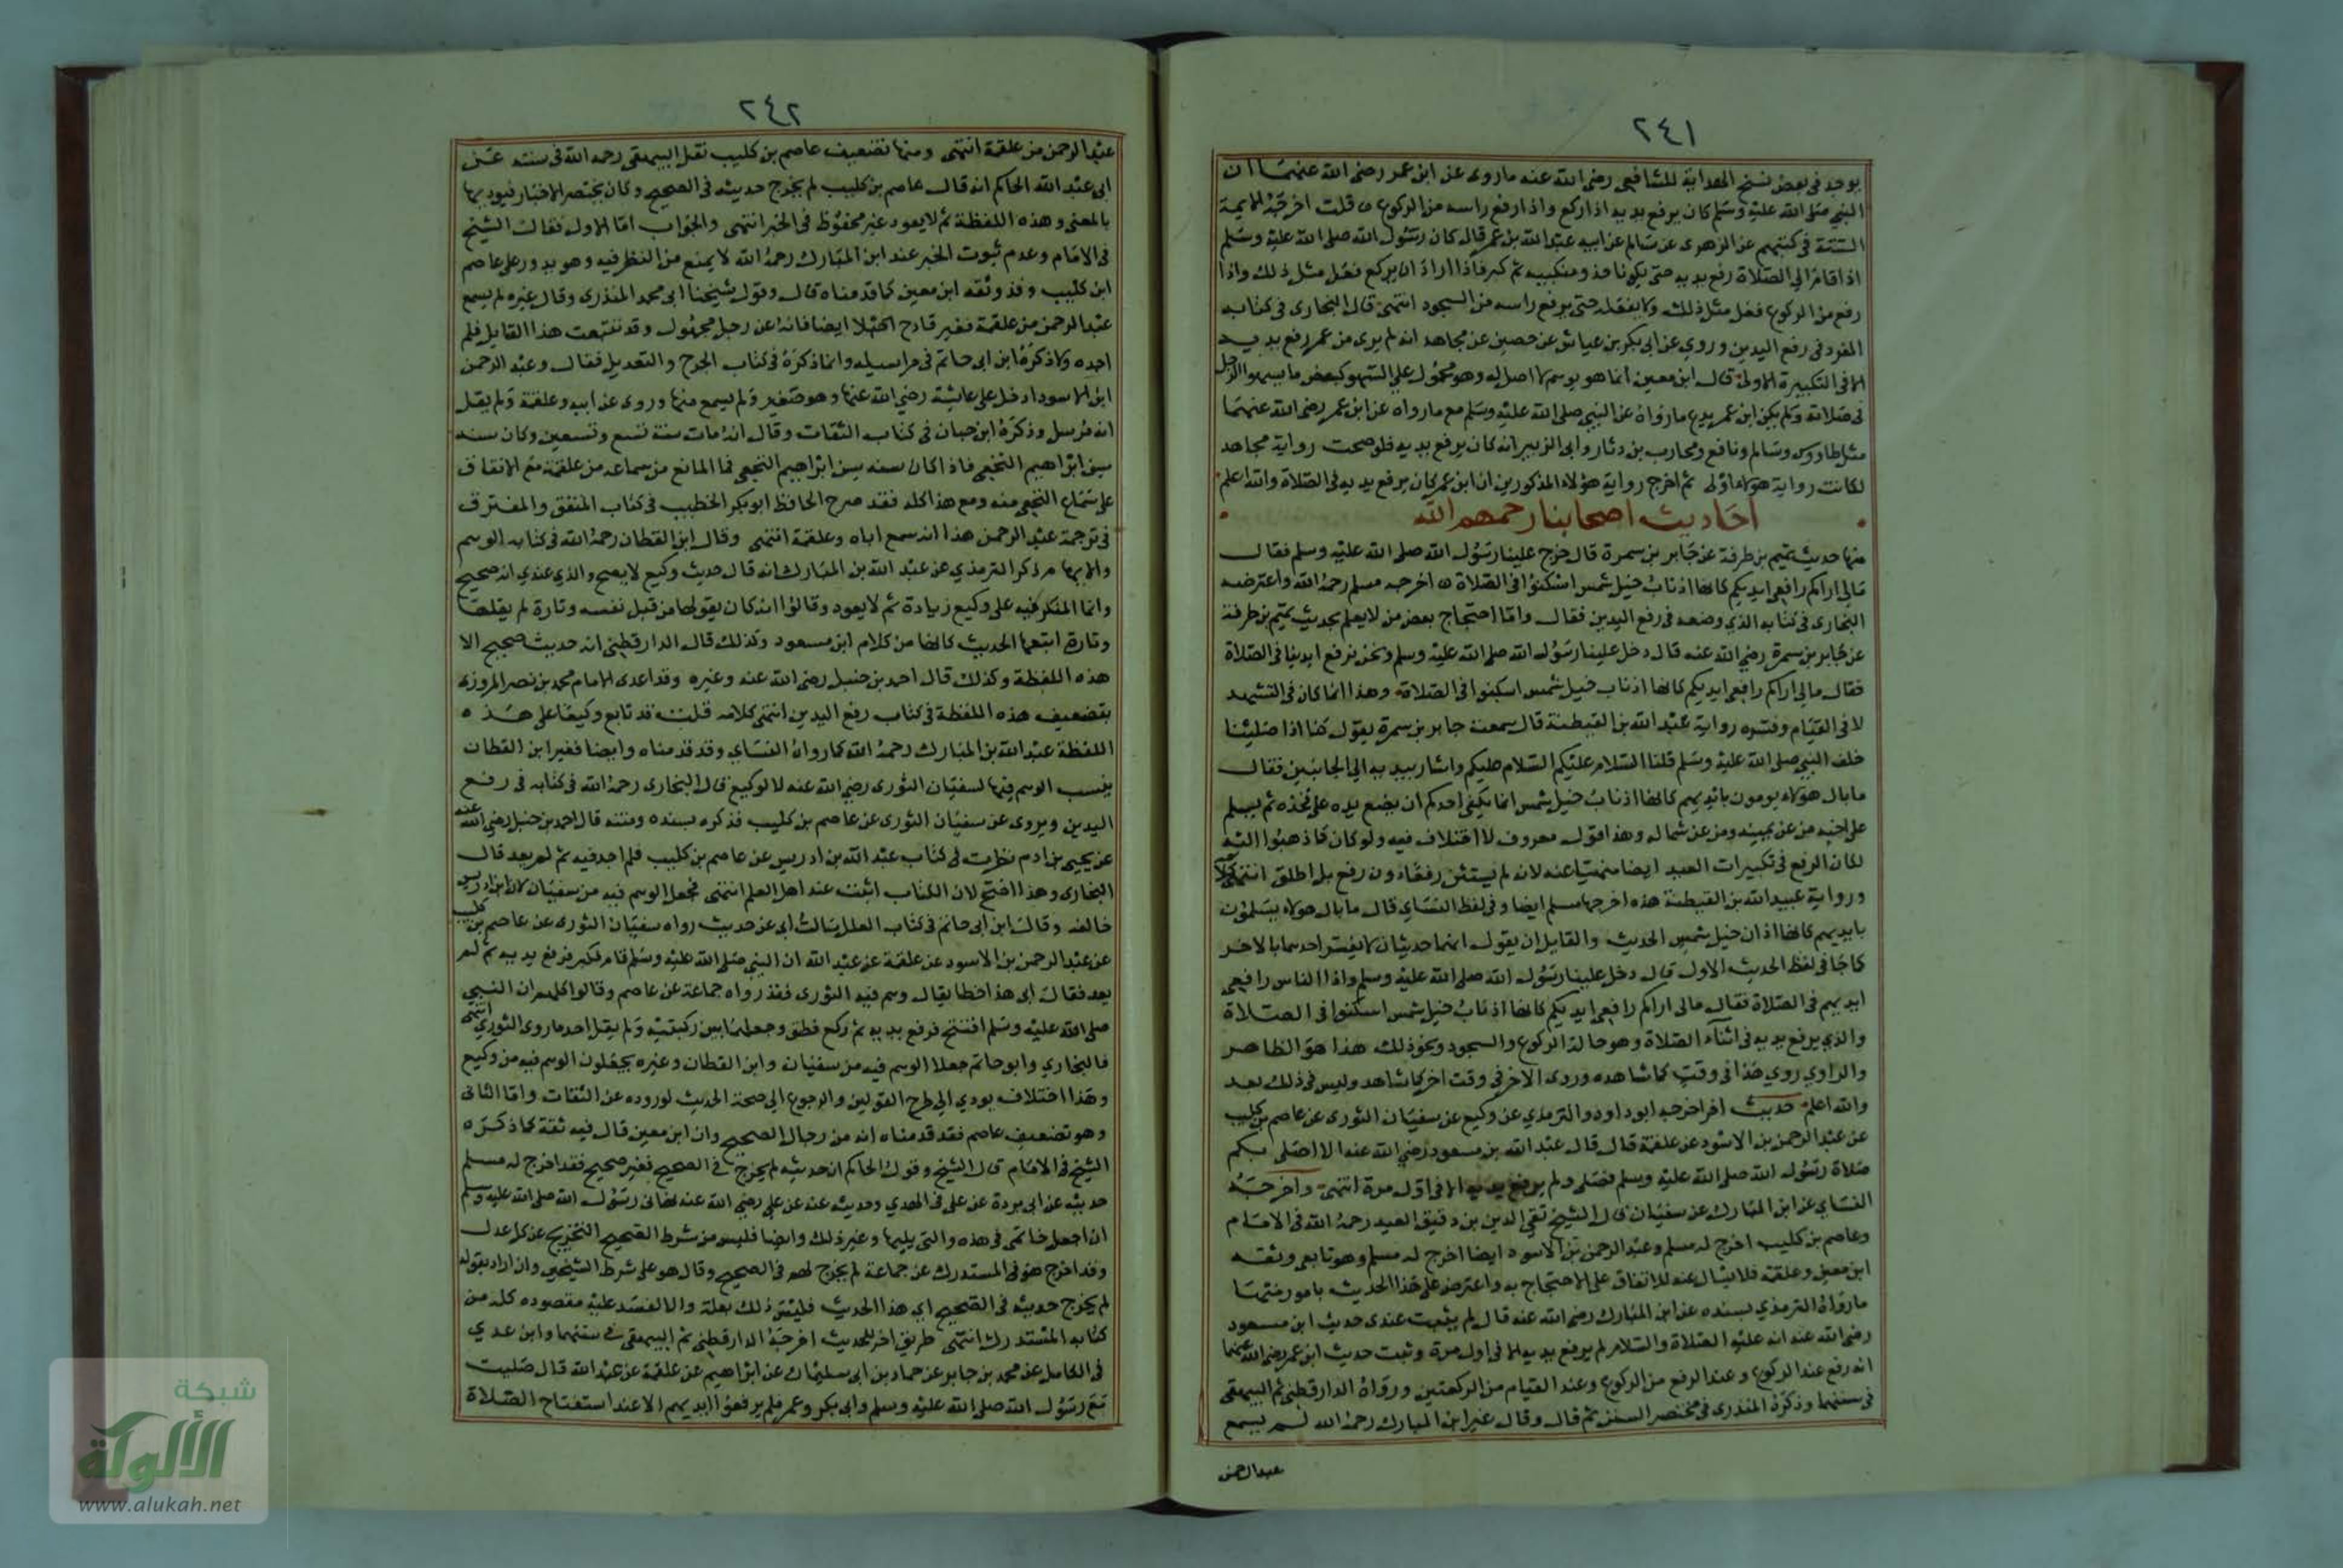 ٢٤١
يوجد فى بعض نسخ الهداية للشافعى رضى الله عنه ماروى عن ابن عمر رضى الله عنهما ان
النبي صلى الله عليه وسلم كان يرفع يديه اذا ركع واذا رفع راسه من الركوع قلت اخرجه الايمة
الستة فى كتبهم عن الزهرى عن سالم عن ابيه عبد الله بن عمر قال كان رسول الله صلى الله عليه وسلم
اذا قام الى الصلاة رفع يديه حتى يكونا حذو منكبيه ثم كبر فاذا اراد ان يركع فعل مثل ذلك واذا
رفع من الركوع فعل مثل ذلك ولا يفعله حتى يرفع راسه من السجود انتهى قال البخارى فى كتابه
المفرد فى رفع اليدين وروي عن ابى بكر بن عياش عن حصين عن مجاهد انه لم يرى من عمر رفع يديه
الا فى التكبيرة الاولى قال ابن معين انما هو يوسم لا اصل له وهو محمول على السهو كبعض ما يسهوا الرجل
فى صلاته ولم يكن ابن عمر يدع مارواه عن النبي صلى الله عليه وسلم مع مارواه عن ابن عمر رضى الله عنهما
مثل طاووس وسالم ونافع ومحارب بن دثار وابى الزبير انه كان يرفع يديه فلو صحت رواية مجاهد
لكانت رواية هولاء اولى ثم اخرج رواية هؤلاء المذكورين ان ابن عمر كان يرفع يديه فى الصلاة والله اعلم
احاديث اصحابنا رحمهم الله
منها حديث تميم بن طرفة عن جابر بن سمرة قال خرج علينا رسول الله صلى الله عليه وسلم فقال
مالى اراكم رافعى ايديكم كانها اذناب خيل شمس اسكنوا فى الصلاة اخرجه مسلم رحمه الله واعترضه
البخارى فى كتابه الذي وضعه فى رفع اليدين فقال واما احتجاج بعض من لا يعلم بحديث تميم بن طرفة
عن جابر بن سمرة رضي الله عنه قال دخل علينا رسول الله صلى الله عليه وسلم ونحن نرفع ايدينا فى الصلاة
فقال مالي اراكم رافعى ايديكم كانها اذناب خيل شمس اسكنوا فى الصلاة وهذا انما كان فى التشهد
لا فى القيام وفسره رواية عبد الله بن القبطية قال سمعت جابر بن سمرة يقول كنا اذا صلينا
خلف النبي صلى الله عليه وسلم قلنا السلام عليكم السلام عليكم واشار بيديه الى الجانبين فقال
ما بال هؤلاء يومون بايديهم كانها اذناب خيل شمس انما يكفى احدكم ان يضع يده على فخذه ثم يسلم
على اخيه من عن يمينه ومن عن شماله وهذا قول معروف لا اختلاف فيه ولو كان كما ذهبوا اليه
لكان الرفع فى تكبيرات العيد ايضا منهيا عنه لانه لم يستثن رفعا دون رفع بل اطلق انتهى كلامه
ورواية عبيد الله بن القبطية هذه اخرجها مسلم ايضا وفى لفظ النساي قال ما بال هولاء يسلمون
بايديهم كانها اذان خيل شمس الحديث والقايل ان يقول انهما حديثان لا يفسر احدهما بالاخر
كما جا فى لفظ الحديث الاول قال دخل علينا رسول الله صلى الله عليه وسلم واذا الناس رافعى
ايديهم فى الصلاة فقال مالى اراكم رافعى ايديكم كانها اذناب خيل شمس اسكنوا فى الصلاة
والذي يرفع يديه فى اثناء الصلاة وهو حالة الركوع والسجود ونحو ذلك هذا هو الظاهر
والراوي روي هذا فى وقت كما شاهده وروى الاخر فى وقت اخر كما شاهد وليس فى ذلك بعد
والله اعلم حديث اخر اخرجه ابو داود والترمذي عن وكيع عن سفيان الثورى عن عاصم بن كليب
عن عبد الرحمن بن الاسود عن علقمة قال قال عبد الله بن مسعود رضي الله عنه الا اصلى بكم
صلاة رسول الله صلى الله عليه وسلم فصلى ولم يرفع يديه الا فى اول مرة انتهى واخرجه
النساي عن ابن المبارك عن سفيان قال الشيخ تقي الدين بن دقيق العيد رحمه الله فى الامام
وعاصم بن كليب اخرج له مسلم وعبد الرحمن بن الاسود ايضا اخرج له مسلم وهو تابعى وثقه
ابن معين وعلقمة فلا يسال عنه للاتفاق على الاحتجاج به واعترض على هذا الحديث بامور منها
مارواه الترمذي بسنده عن ابن المبارك رضى الله عنه قال لم يثبت عندى حديث ابن مسعود
رضى الله عنه انه عليه الصلاة والسلام لم يرفع يديه الا فى اول مرة وثبت حديث ابن عمر رضى الله عنهما
انه رفع عند الركوع وعند الرفع من الركوع وعند القيام من الركعتين ورواه الدارقطنى ثم البيهقى
فى سننهما وذكره المنذرى فى مختصر السنن ثم قال وقال غير ابن المبارك رحمه الله لم يسمع
عبد الرحمن
٢٤٢
عبد الرحمن من علقمة انتهى ومنها تضعيف عاصم بن كليب نقل البيهقى رحمه الله فى سننه عن
ابى عبد الله الحاكم انه قال عاصم بن كليب لم يخرج حديثه فى الصحيح وكان يختصر الاخبار فيوديها
بالمعنى وهذه اللفظة ثم لا يعود غير محفوظ فى الخبر انتهى والجواب اما الاول فقال الشيخ
فى الامام وعدم ثبوت الخبر عند ابن المبارك رحمه الله لا يمنع من النظر فيه وهو يدور على عاصم
ابن كليب وقد وثقه ابن معين كما قدمناه قال وقول شيخنا ابى محمد المنذرى وقال غيره لم يسمع
عبد الرحمن من علقمة فغير قادح ايضا فانه عن رجل مجهول وقد تتبعت هذا القايل فلم
اجده ولا ذكره ابن ابى حاتم فى مراسيله وانما ذكره فى كتاب الجرح والتعديل فقال وعبد الرحمن
ابن الاسود ادخل على عايشة رضي الله عنها وهو صغير ولم يسمع منها وروى عن ابيه وعلقمة ولم يقل
انه مرسل وذكره ابن حبان فى كتاب الثقات وقال انه مات سنة تسع وتسعين وكان سنه
سن ابراهيم النخعى فاذا كان سنه سن ابراهيم النخعى فما المانع من سماعه من علقمة مع الاتفاق
على سماع النخعى منه ومع هذا كله فقد صرح الحافظ ابو بكر الخطيب فى كتاب المتفق والمفترق
فى ترجمة عبد الرحمن هذا انه سمع اباه وعلقمة انتهى وقال ابن القطان رحمه الله فى كتابه الوسم
والابهام ذكر الترمذي عن عبد الله بن المبارك انه قال حديث وكيع لا يصح والذي عندي انه صحيح
وانما المنكر فيه على وكيع زيادة ثم لا يعود وقالوا انه كان يقولها من قبل نفسه وتارة لم يقلها
وتارة اتبعها الحديث كانها من كلام ابن مسعود وكذلك قال الدارقطنى انه حديث صحيح الا
هذه اللفظة وكذلك قال احمد بن حنبل رضى الله عنه وغيره وقد اعدى الامام محمد بن نصر المروزى
بتضعيف هذه اللفظة فى كتاب رفع اليدين انتهى كلامه قلت قد تابع وكيعا على هذه
اللفظة عبد الله بن المبارك رحمه الله كما رواه النساي وقد قدمناه وايضا فغير ابن القطان
ينسب الوسم فيها لسفيان الثورى رضي الله عنه لا لوكيع قال البخارى رحمه الله فى كتابه فى رفع
اليدين ويروى عن سفيان الثورى عن عاصم بن كليب فذكره بسنده ومتنه قال احمد بن حنبل رضى الله عنه
عن يحيى بن ادم نظرت فى كتاب عبد الله بن ادريس عن عاصم بن كليب فلم اجد فيه ثم لم يعد قال
البخارى وهذا اصح لان الكتاب اثبت عند اهل العلم انتهى فجعل الوسم فيه من سفيان لان ابن ادريس
خالفه وقال ابن ابى حاتم فى كتاب العلل سالت ابى عن حديث رواه سفيان الثورى عن عاصم بن كليب
عن عبد الرحمن بن الاسود عن علقمة عن عبد الله ان النبي صلى الله عليه وسلم قام فكبر فرفع يديه ثم لم
يعد فقال ابى هذا خطا يقال وسم فيه الثورى فقد رواه جماعة عن عاصم وقالوا كلهم ان النبي
صلى الله عليه وسلم افتتح فرفع يديه ثم ركع فطبق وجعلهما بين ركبتيه ولم يقل احد ما روى الثوري انتهى
فالبخاري وابو حاتم جعلا الوسم فيه من سفيان وابن القطان وغيره يجعلون الوسم فيه من وكيع
وهذا اختلاف يودي الى طرح القولين والرجوع الى صحة الحديث لوروده عن الثقات واما الثانى
وهو تضعيف عاصم فقد قدمناه انه من رجال الصحيح وان ابن معين قال فيه ثقة كما ذكره
الشيخ فى الامام قال الشيخ وقول الحاكم ان حديثه لم يخرج فى الصحيح فغير صحيح فقد اخرج له مسلم
حديثه عن ابى بردة عن على فى الهدي وحديثه عنه عن على رضي الله عنه نهانى رسول الله صلى الله عليه وسلم
ان اجعل خاتمى فى هذه والتى يليها وغير ذلك وايضا فليس من شرط الصحيح التخريج عن كل عدل
وقد اخرج هو فى المستدرك عن جماعة لم يخرج لهم فى الصحيح وقال هو على شرط الشيخين وان اراد بقوله
لم يخرج حديثه فى الصحيح اى هذا الحديث فليس ذلك بعلة والا لفسد عليه مقصوده كله من
كتابه المستدرك انتهى طريق اخر للحديث اخرجه الدارقطنى ثم البيهقى فى سننهما وابن عدي
فى الكامل عن محمد بن جابر عن حماد بن ابى سليمان عن ابراهيم عن علقمة عن عبد الله قال صليت
مع رسول الله صلى الله عليه وسلم وابى بكر وعمر فلم يرفعوا ايديهم الا عند استفتاح الصلاة
شبكة
الألوكة
www.alukah.net